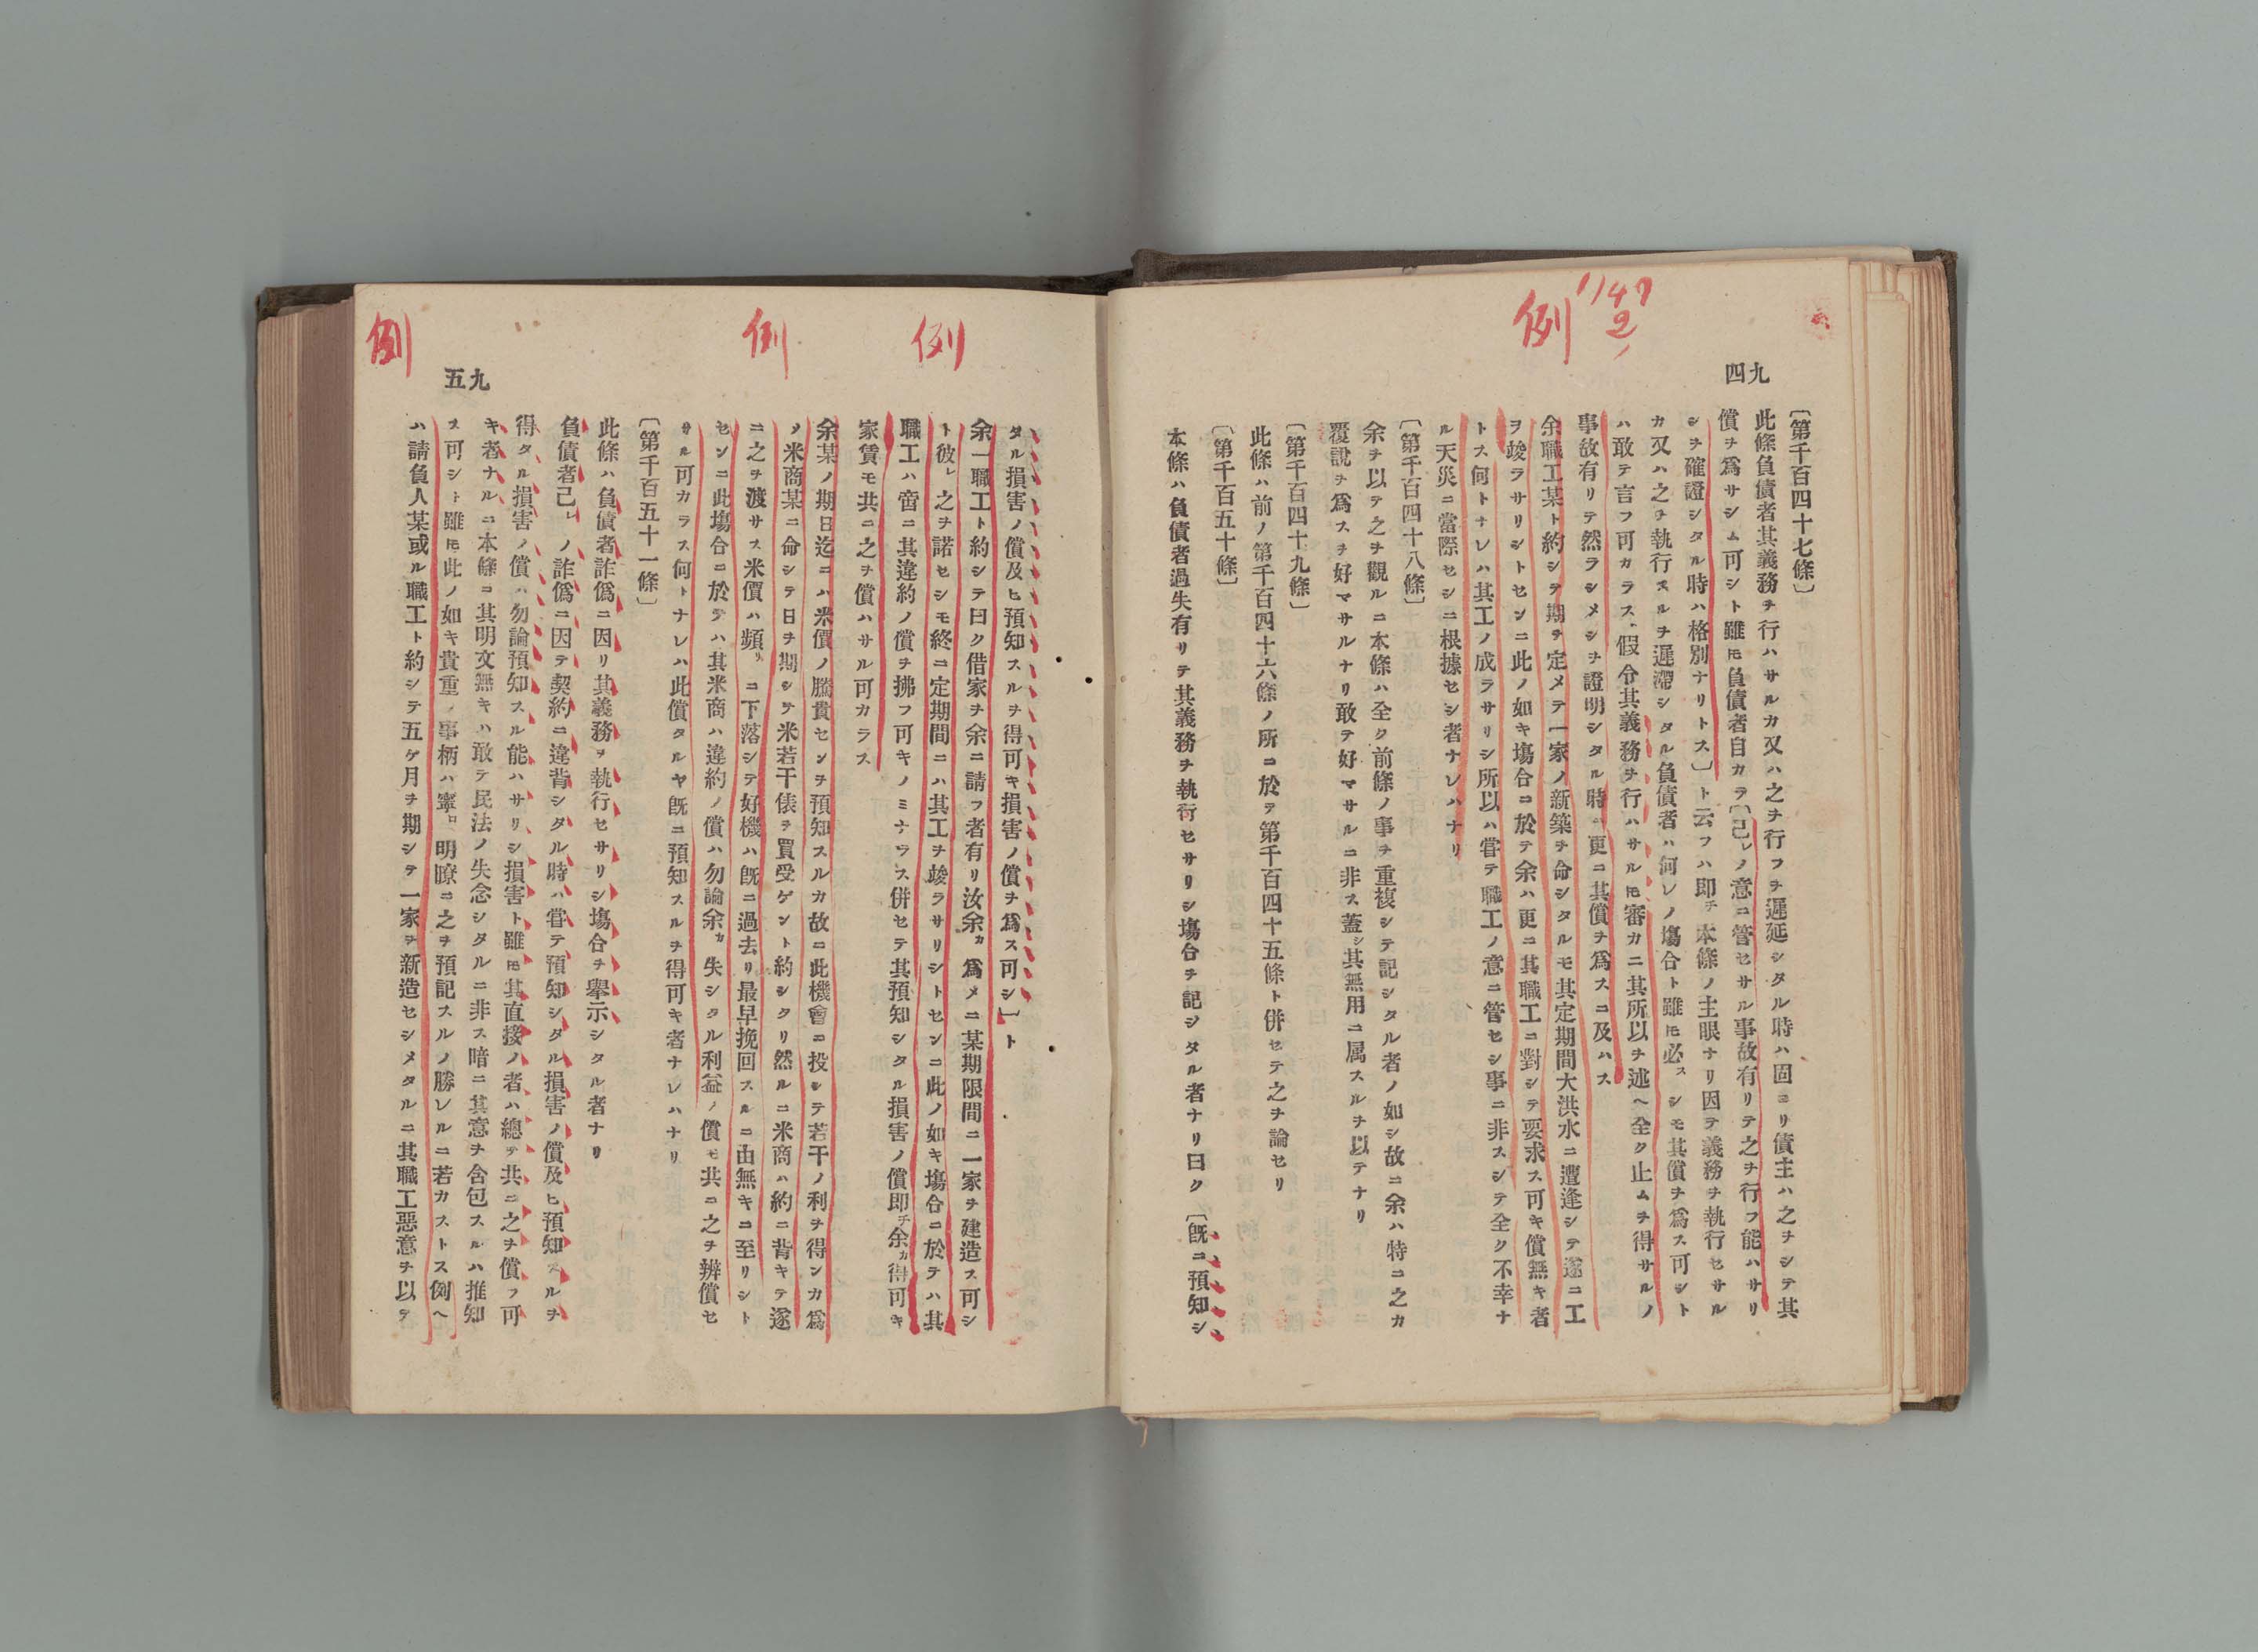 1147
2
例
九四
〔第千百四十七條〕
此條負債者其義務ヲ行ハサルカ又ハ之ヲ行フヲ遲延シタル時ハ固ヨリ債主ハ之ヲシテ其
償ヲ爲サシム可シト雖𪜈負債者自カラ〔己レノ意ニ管セサル事故有リテ之ヲ行フ能ハサリ
シヲ確證シタル時ハ格別ナリトス〕ト云フハ卽チ本條ノ主眼ナリ因テ義務ヲ執行セサル
カ又ハ之ヲ執行スルヲ遲滯シタル負債者ハ何レノ塲合ト雖𪜈必スシモ其償ヲ爲ス可シト
ハ敢テ言フ可カラス、假令其義務ヲ行ハサル𪜈審カニ其所以ヲ述ヘ全ク止ムヲ得サルノ
事故有リテ然ラシメシヲ證明シタル時ハ更ニ其償ヲ爲スニ及ハス
余職工某ト約シテ期ヲ定メテ一家ノ新築ヲ命シタルモ其定期間大洪水ニ遭逢シテ遂ニ工
ヲ竣ラサリシトセンニ此ノ如キ塲合ニ於テ余ハ更ニ其職工ニ對シテ要求ス可キ償無キ者
トス何トナレハ其工ノ成ラサリシ所以ハ甞テ職工ノ意ニ管セシ事ニ非スシテ全ク不幸ナ
ル天災ニ當際セシニ根據セシ者ナレハナリ
〔第千百四十八條〕
余ヲ以テ之ヲ觀ルニ本條ハ全ク前條ノ事ヲ重複シテ記シタル者ノ如シ故ニ余ハ特ニ之カ
覆說ヲ爲スヲ好マサルナリ敢テ好マサルニ非ス蓋シ其無用ニ属スルヲ以テナリ
〔第千百四十九條〕
此條ハ前ノ第千百四十六條ノ所ニ於テ第千百四十五條ト併セテ之ヲ論セリ
〔第千百五十條〕
本條ハ負債者過失有リテ其義務ヲ執行セサリシ塲合ヲ記シタル者ナリ曰ク〔旣ニ預知シ
例
例
例
九五
タル損害ノ償及ヒ預知スルヲ得可キ損害ノ償ヲ爲ス可シ〕ト
余一職工ト約シテ曰ク借家ヲ余ニ請フ者有リ汝余カ爲メニ某期限間ニ一家ヲ建造ス可シ
ト彼レ之ヲ諾セシモ終ニ定期間ニハ其工ヲ竣ラサリシトセンニ此ノ如キ塲合ニ於テハ其
職工ハ啻ニ其違約ノ償ヲ拂フ可キノミナラス併セテ其預知シタル損害ノ償卽チ余カ得可キ
家賃モ共ニ之ヲ償ハサル可カラス
余某ノ期日迄ニハ米價ノ騰貴センヲ預知スルカ故ニ此機會ニ投シテ若干ノ利ヲ得ンカ爲
ノ米商某ニ命シテ日ヲ期シテ米若干俵ヲ買受ケント約シタリ然ルニ米商ハ約ニ背キテ遂
ニ之ヲ渡サス米價ハ頻リニ下落シテ好機ハ旣ニ過去リ最早挽回スルニ由無キニ至リシト
センニ此塲合ニ於テハ其米商ハ違約ノ償ハ勿論余カ失シタル利益ノ償モ共ニ之ヲ辨償セ
サル可カラス何トナレハ此償タルヤ旣ニ預知スルヲ得可キ者ナレハナリ
〔第千百五十一條〕
此條ハ負債者詐僞ニ因リ其義務ヲ執行セサリシ塲合ヲ擧示シタル者ナリ
負債者己レノ詐僞ニ因テ契約ニ違背シタル時ハ甞テ預知シタル損害ノ償及ヒ預知スルヲ
得タル損害ノ償ハ勿論預知スル能ハサリシ損害ト雖𪜈其直接ノ者ハ總テ共ニ之ヲ償フ可
キ者ナルニ本條ニ其明文無キハ敢テ民法ノ失念シタルニ非ス暗ニ其意ヲ含包スルハ推知
ス可シト雖𪜈此ノ如キ貴重ノ事柄ハ寧ロ明瞭ニ之ヲ預記スルノ勝レルニ若カストス例ヘ
ハ請負人某或ル職工ト約シテ五ケ月ヲ期シテ一家ヲ新造セシメタルニ其職工惡意ヲ以テ